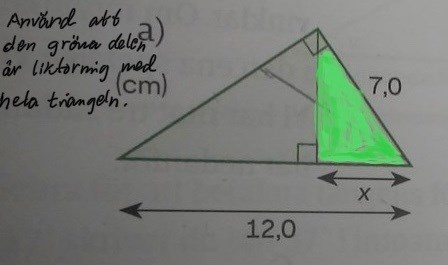 Använd att
den gröna delen
är likformig med
hela triangeln.
a)
(cm)
7,0
x
12,0